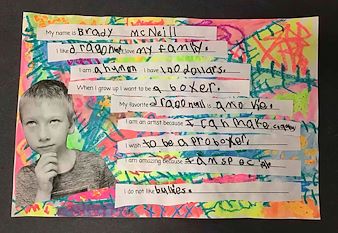 My name is Brady McNeill
I like dragons I love my family.
I am a human I have 100 dollars.
When I grow up I want to be a boxer.
My favorite
I am an artist because I can make
I wish to be a pro boxer,
I am amazing because I am
I do not like bullies.